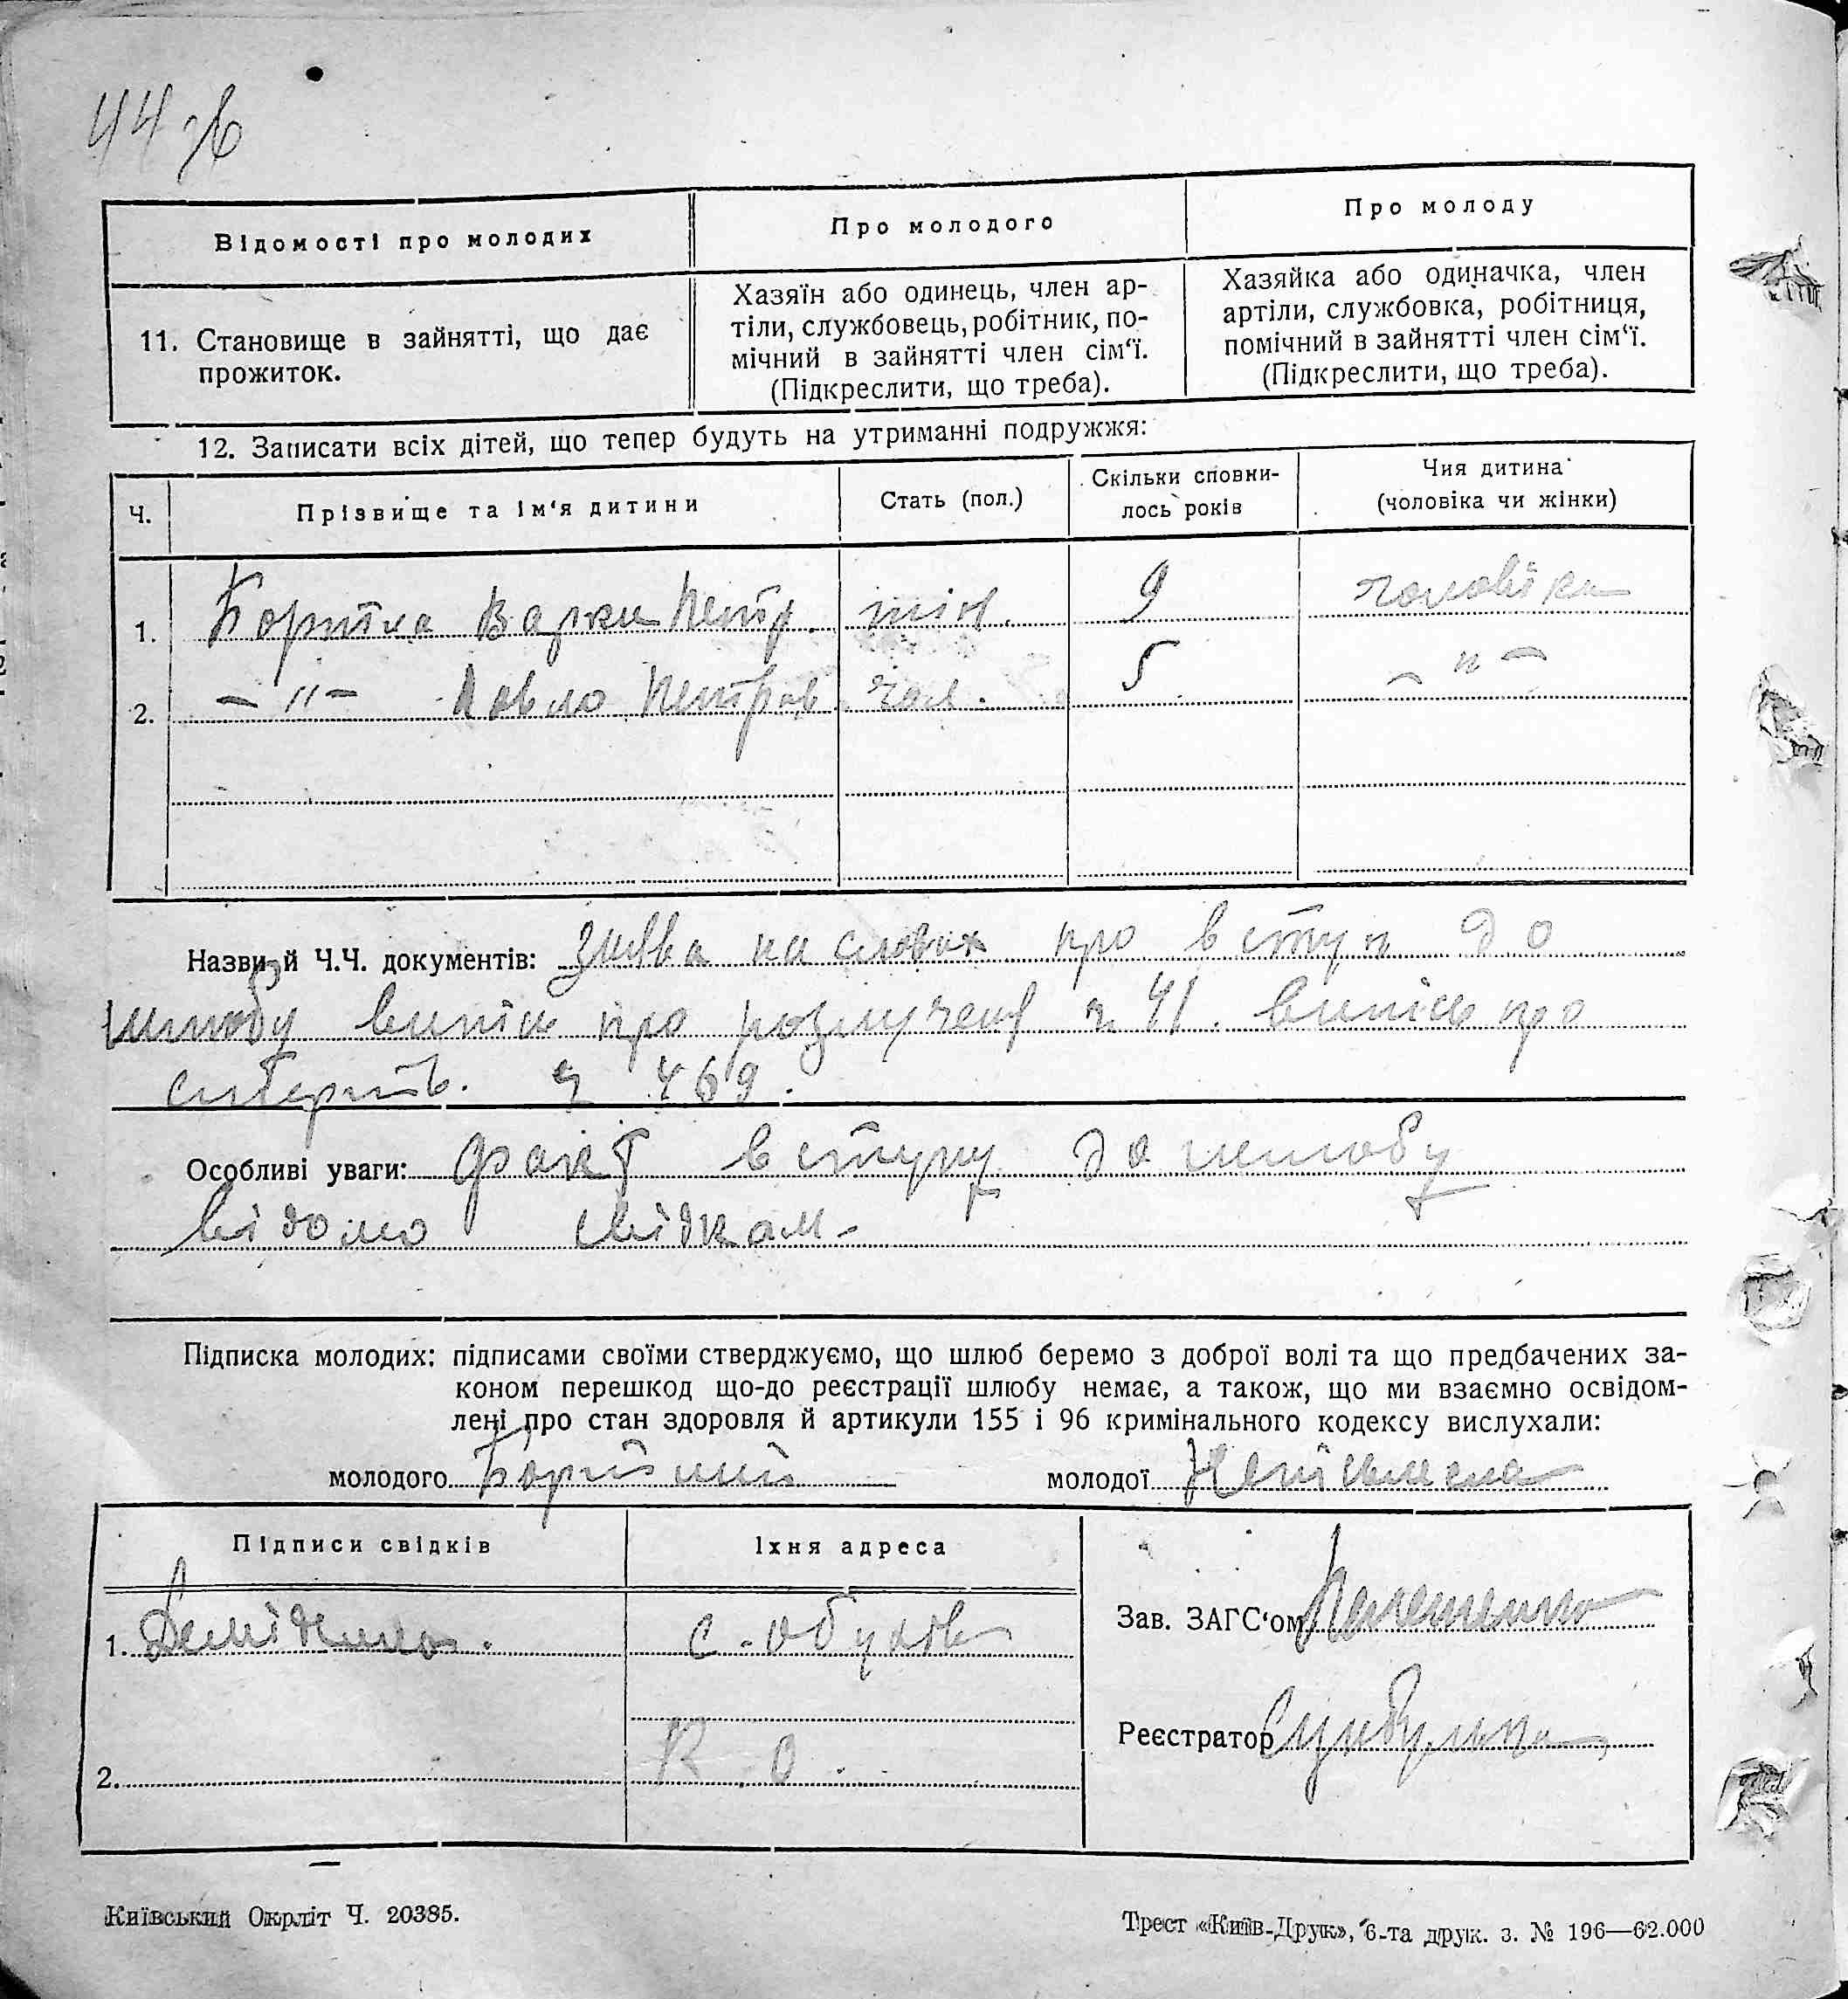 44
Відомості про молодих
Про молодого
Про молоду
11. Становище в зайнятті, що дає
прожиток.
Хазяїн або одинець, член ар-
тіли, службовець, робітник, по-
мічний в зайнятті член сім'ї.
(Підкреслити, що треба).
Хазяйка або одиначка, член
артіли, службовка, робітниця,
помічний в зайнятті член сім'ї.
(Підкреслити, що треба).
12. Записати всіх дітей, що тепер будуть на утриманні подружжя:
Ч.
Прізвище та ім'я дитини
Стать (пол.)
Скільки сповни-
лось років
Чия дитина
(чоловіка чи жінки)
1. Варка Петр. жін. 9 чоловіка
2. — " — Павло Петров чол. 5 — " —
Назви й Ч.Ч. документів: заява на словах про вступ до
шлюбу випись про розлучення ч. 41. випись про
смерть. ч 469.
Особливі уваги: факт вступу до шлюбу
відомо свідкам-
Підписка молодих: підписами своїми стверджуємо, що шлюб беремо з доброї волі та що предбачених за-
коном перешкод що-до реєстрації шлюбу немає, а також, що ми взаємно освідом-
лені про стан здоровля й артикули 155 і 96 кримінального кодексу вислухали:
молодого
молодої Неписьмена
Підписи свідків
Їхня адреса
1. Демиденко. с. Обухів
2. К О.
Зав. ЗАГС'ом
Реєстратор Цибулька
Київський Окрліт Ч. 20385.
Трест «Київ-Друк», 6-та друк. з. № 196—62.000